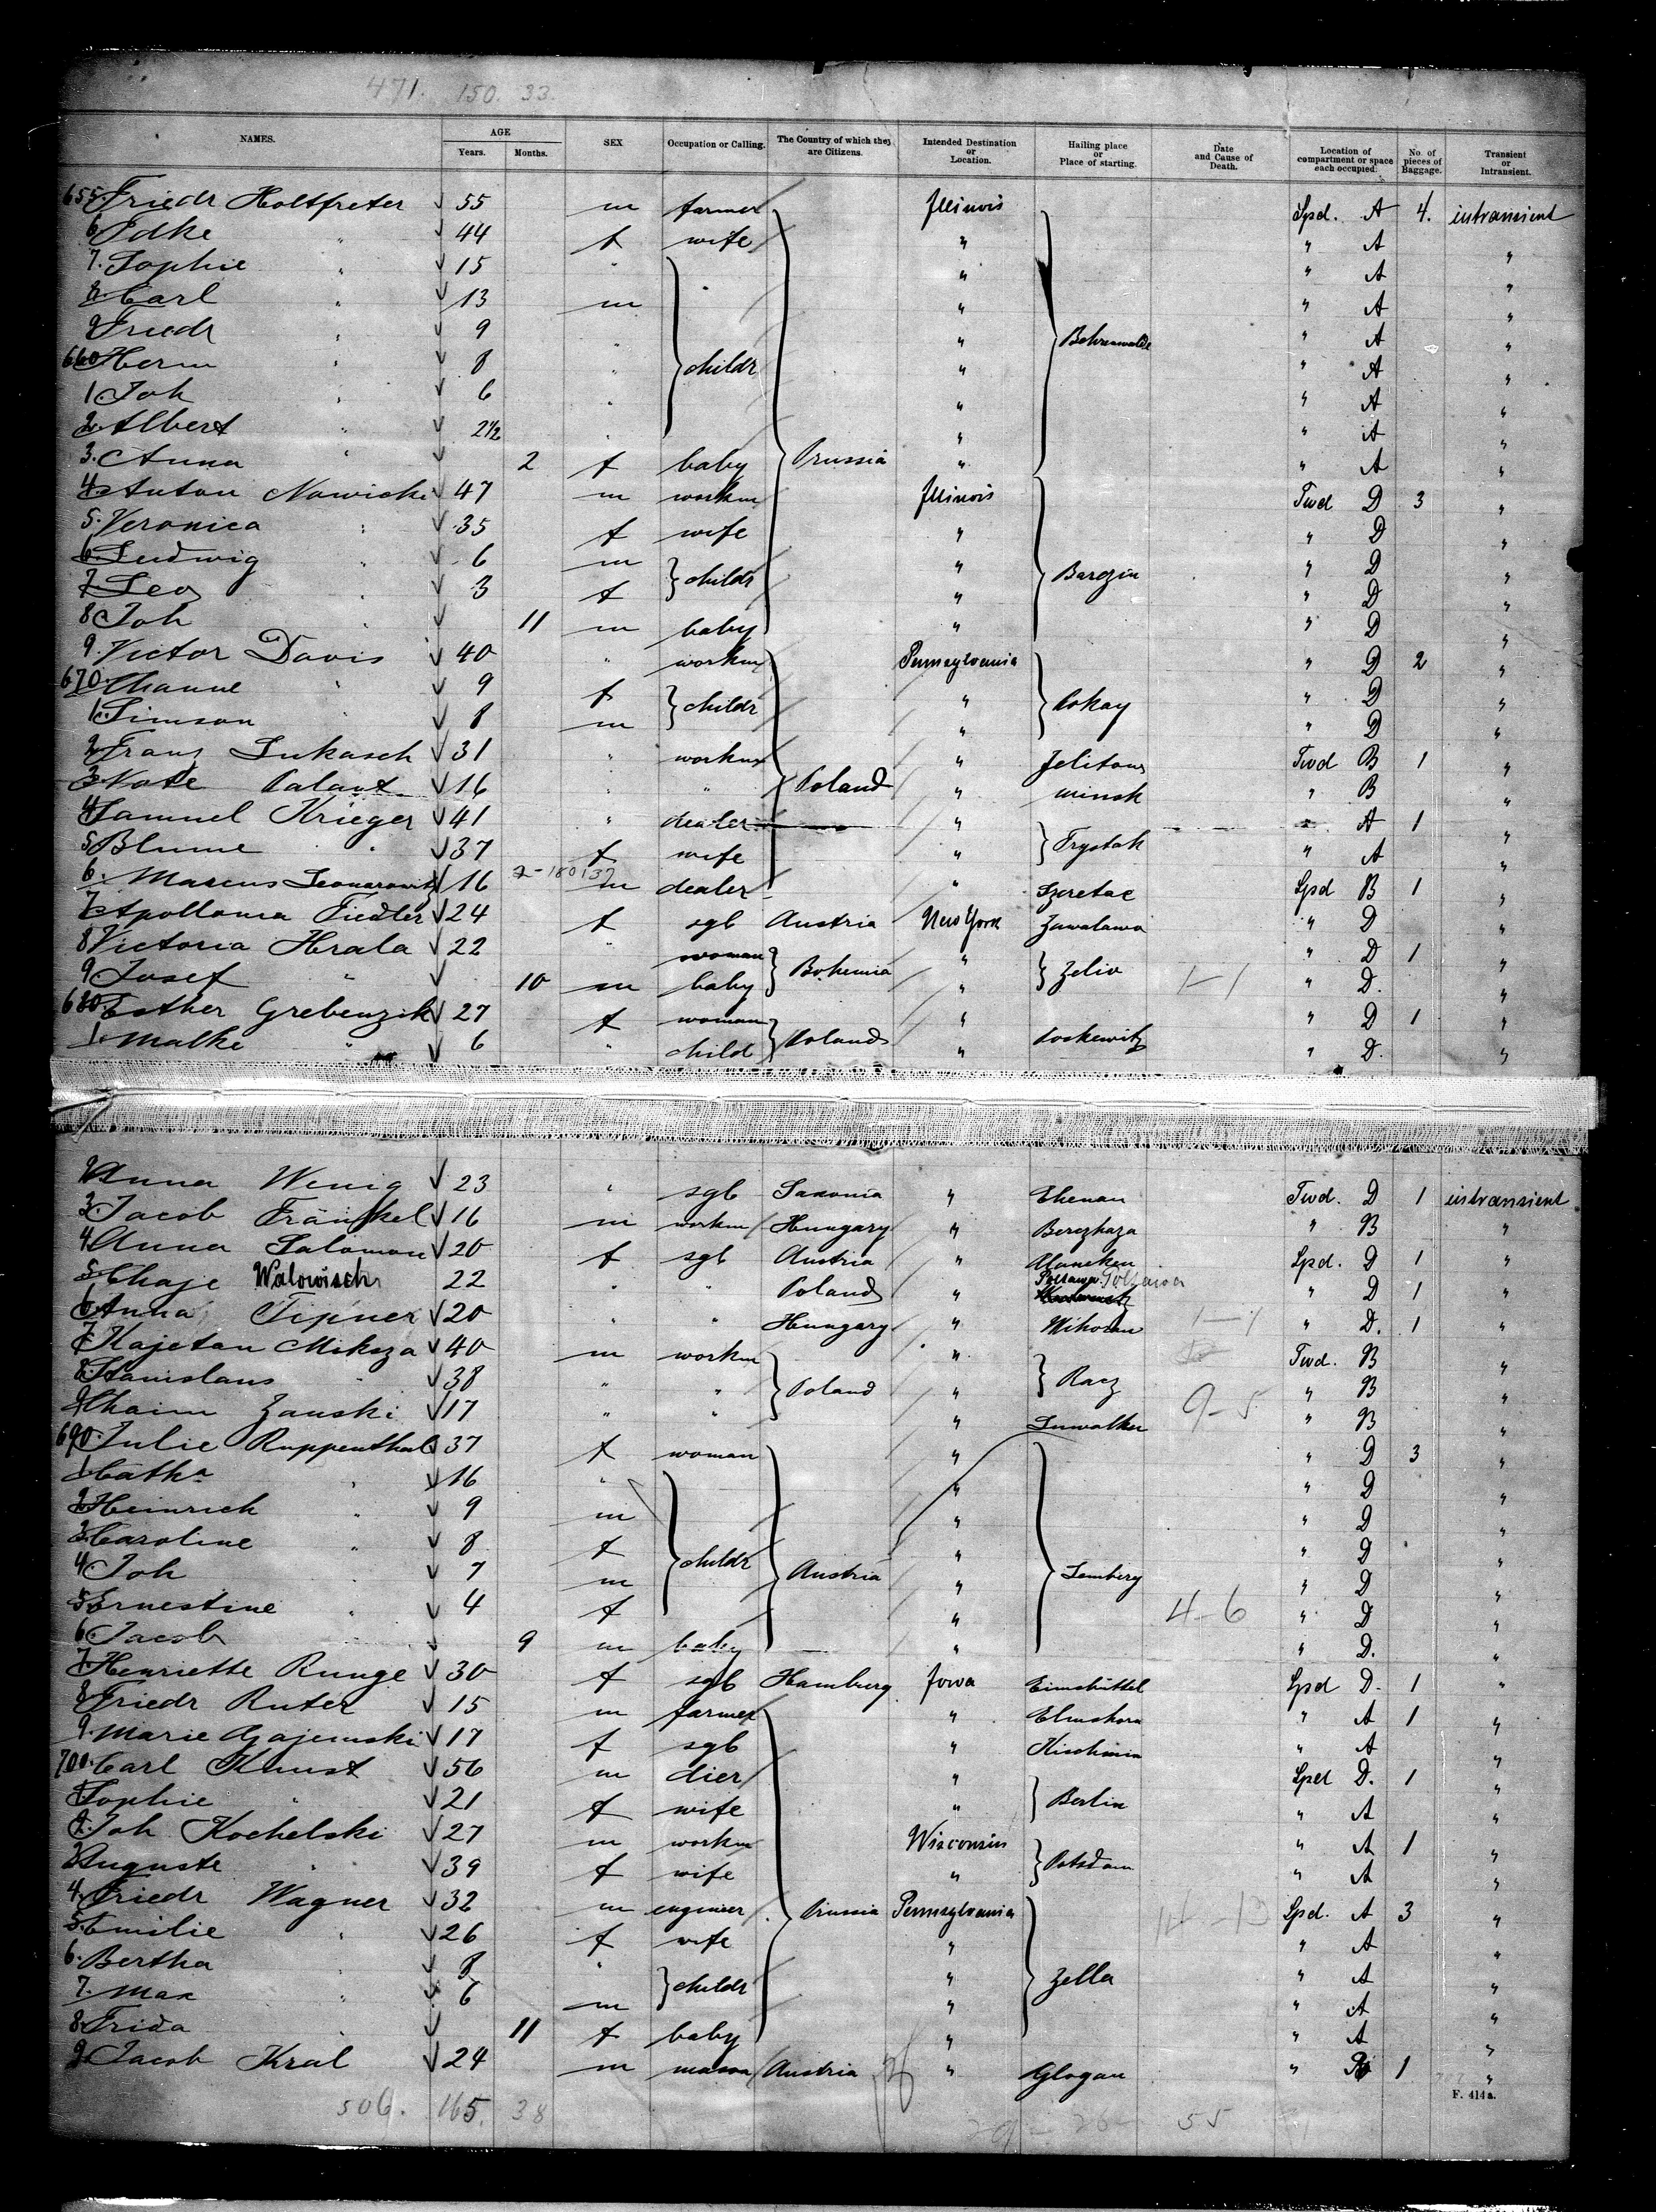 471. 150. 33.
NAMES. AGE Years. Months. SEX Occupation or Calling. The Country of which they are Citizens. Intended Destination or Location. Hailing place or Place of starting. Date and Cause of Death. Location of compartment or space each occupied. No. of pieces of Baggage. Transient or Intransient.
655. Friedr Holtfreter 55 m farmer Illinois Spd. A 4. intransient
6 " 44 f wife " " A "
7. Sophie " 15 " " " A "
8. Carl " 13 m " " A "
9 Friedr " 9 " " " A "
660 Herm " 8 " childr " " A "
1 Joh " 6 " " " A "
2. Albert " 2½ " " " A "
3. Anna " 2 f baby Prussia " " A "
4. Anton Nowicki 47 m workm Illinois Twd D 3 "
5. Veronica " 35 f wife " " D "
6. Ludwig " 6 m childr " " D "
7. Leo " 3 f " Barczin " D "
8 Joh " 11 m baby " " D "
9. Victor Davis 40 " workm Pennsylvania " D 2 "
670. Channe " 9 f childr " Pokay " D "
1. Simson " 8 m " " D "
2. Franz Lukasch 31 " workm " Twd B 1 "
3. Note Palant 16 " " Poland " minsk " B "
4 Samuel Krieger 41 " dealer " A 1 "
5 Blume " 37 f wife " Trystak " A "
6. Marcus 16 2-180137 m dealer " Szeretac Spd B 1 "
7. Apollonia Fiedler 24 f sgl Austria New York Zawalawa " D "
8 Victoria Hrala 22 " woman Bohemia " Zeliv " D 1 "
9. Josef " 10 m baby " 1-1 " D. "
680. Esther Grebenzik 27 f woman Poland " Poskewitz " D 1 "
1. Malke " 6 " child " " D. "
2 Anna Wenig 23 " sgl Saxonia " Twd. D 1 intransient
3. Jacob Fränkel 16 m workm Hungary " " B "
4 Anna Salomon 20 f sgl Austria " Spd. D 1 "
5 Chaje Walowisch 22 " " Poland " Poltawa " D 1 "
6 Anna Tipner 20 " " Hungary " 1-1 " D. 1 "
7. Kajetan Mikoza 40 m workm " Twd. B "
8. Stanislaus " 38 " " Poland " Racz " B "
9 Chaim Zauski 17 " " " Suwalken 9-5 " B "
690. Julie Ruppenthal 37 f woman " " D 3 "
1 Cath " 16 " " " D "
2 Heinrich " 9 m " " D "
3. Caroline " 8 f childr " " D "
4 Joh " 7 m Austria " Lemberg " D "
5 Ernestine " 4 f " 4-6 " D "
6. Jacob " 9 m baby " " D. "
7. Henriette Runge 30 f sgl Hamburg Iowa Eimsbüttel Spd D. 1 "
8 Friedr Ruter 15 m farmer " Elmshorn " A 1 "
9. Marie Gajewski 17 f sgl " " A "
700. Carl Kunst 56 m dier " Berlin Spd D. 1 "
1 Sophie " 21 f wife " " A "
2. Joh Kochelski 27 m workm Wisconsin Potsdam " A 1 "
3 Auguste " 39 f wife " " A "
4. Friedr Wagner 32 m engineer Prussia Pennsylvania Spd. A 3 "
5. Emilie " 26 f wife " " A "
6. Bertha " 8 " childr " Zella " A "
7. Max " 6 m " " A "
8. Frida " 11 f baby " " A "
9. Jacob Kral 24 m mason Austria " Glogau " B 1 "
F. 414 a.
506. 165. 38 29 - 26 - 55